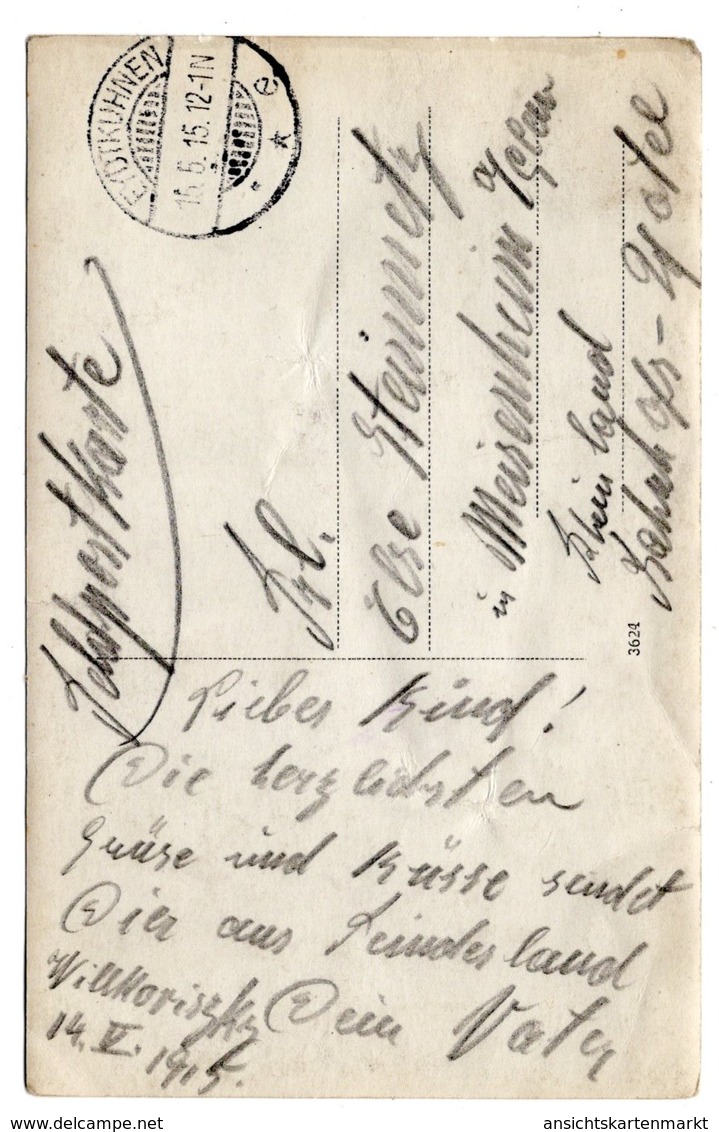 EYDTKUHNEN
15.6.15.12-1N
* e *
Feldpostkarte
Frl.
Else Steinmetz
in Meisenheim
Rheinland
Bahnhofs-Hotel
3624
Liebes Kind!
Die herzlichsten
Grüse und Küsse sendet
Dier aus Feindesland
Dein Vater
Willkoriszky
14. V. 1915.
© ansichtskartenmarkt
ansichtskartenmarkt